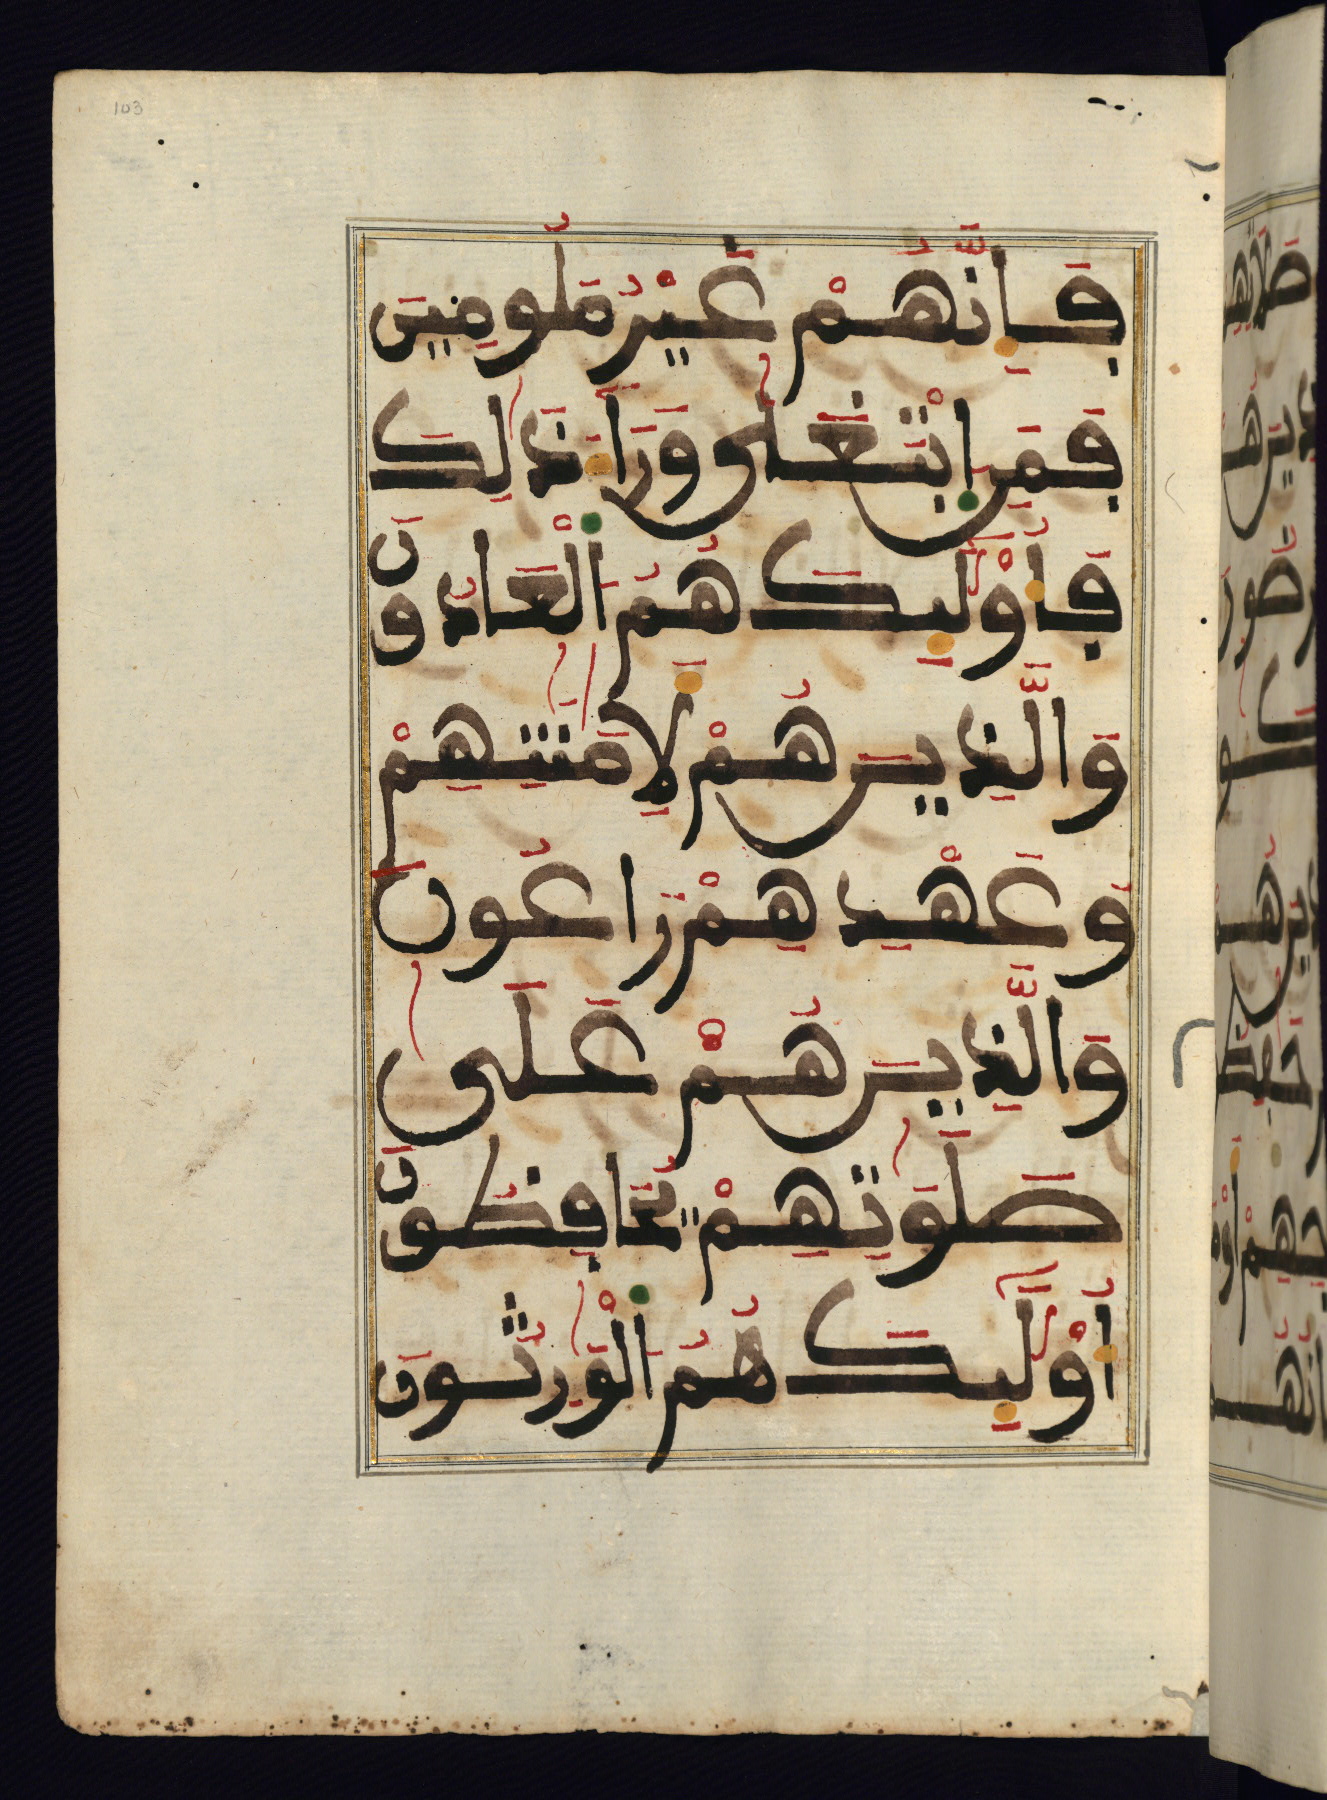 103
فَإِنَّهُمْ غَيْرُ مَلُومِينَ
فَمَنِ ابْتَغَىٰ وَرَاءَ ذَٰلِكَ
فَأُوْلَٰئِكَ هُمُ الْعَادُونَ
وَالَّذِينَ هُمْ لِأَمَٰنَٰتِهِمْ
وَعَهْدِهِمْ رَاعُونَ
وَالَّذِينَ هُمْ عَلَىٰ
صَلَوَٰتِهِمْ يُحَافِظُونَ
أُوْلَٰئِكَ هُمُ الْوَٰرِثُونَ